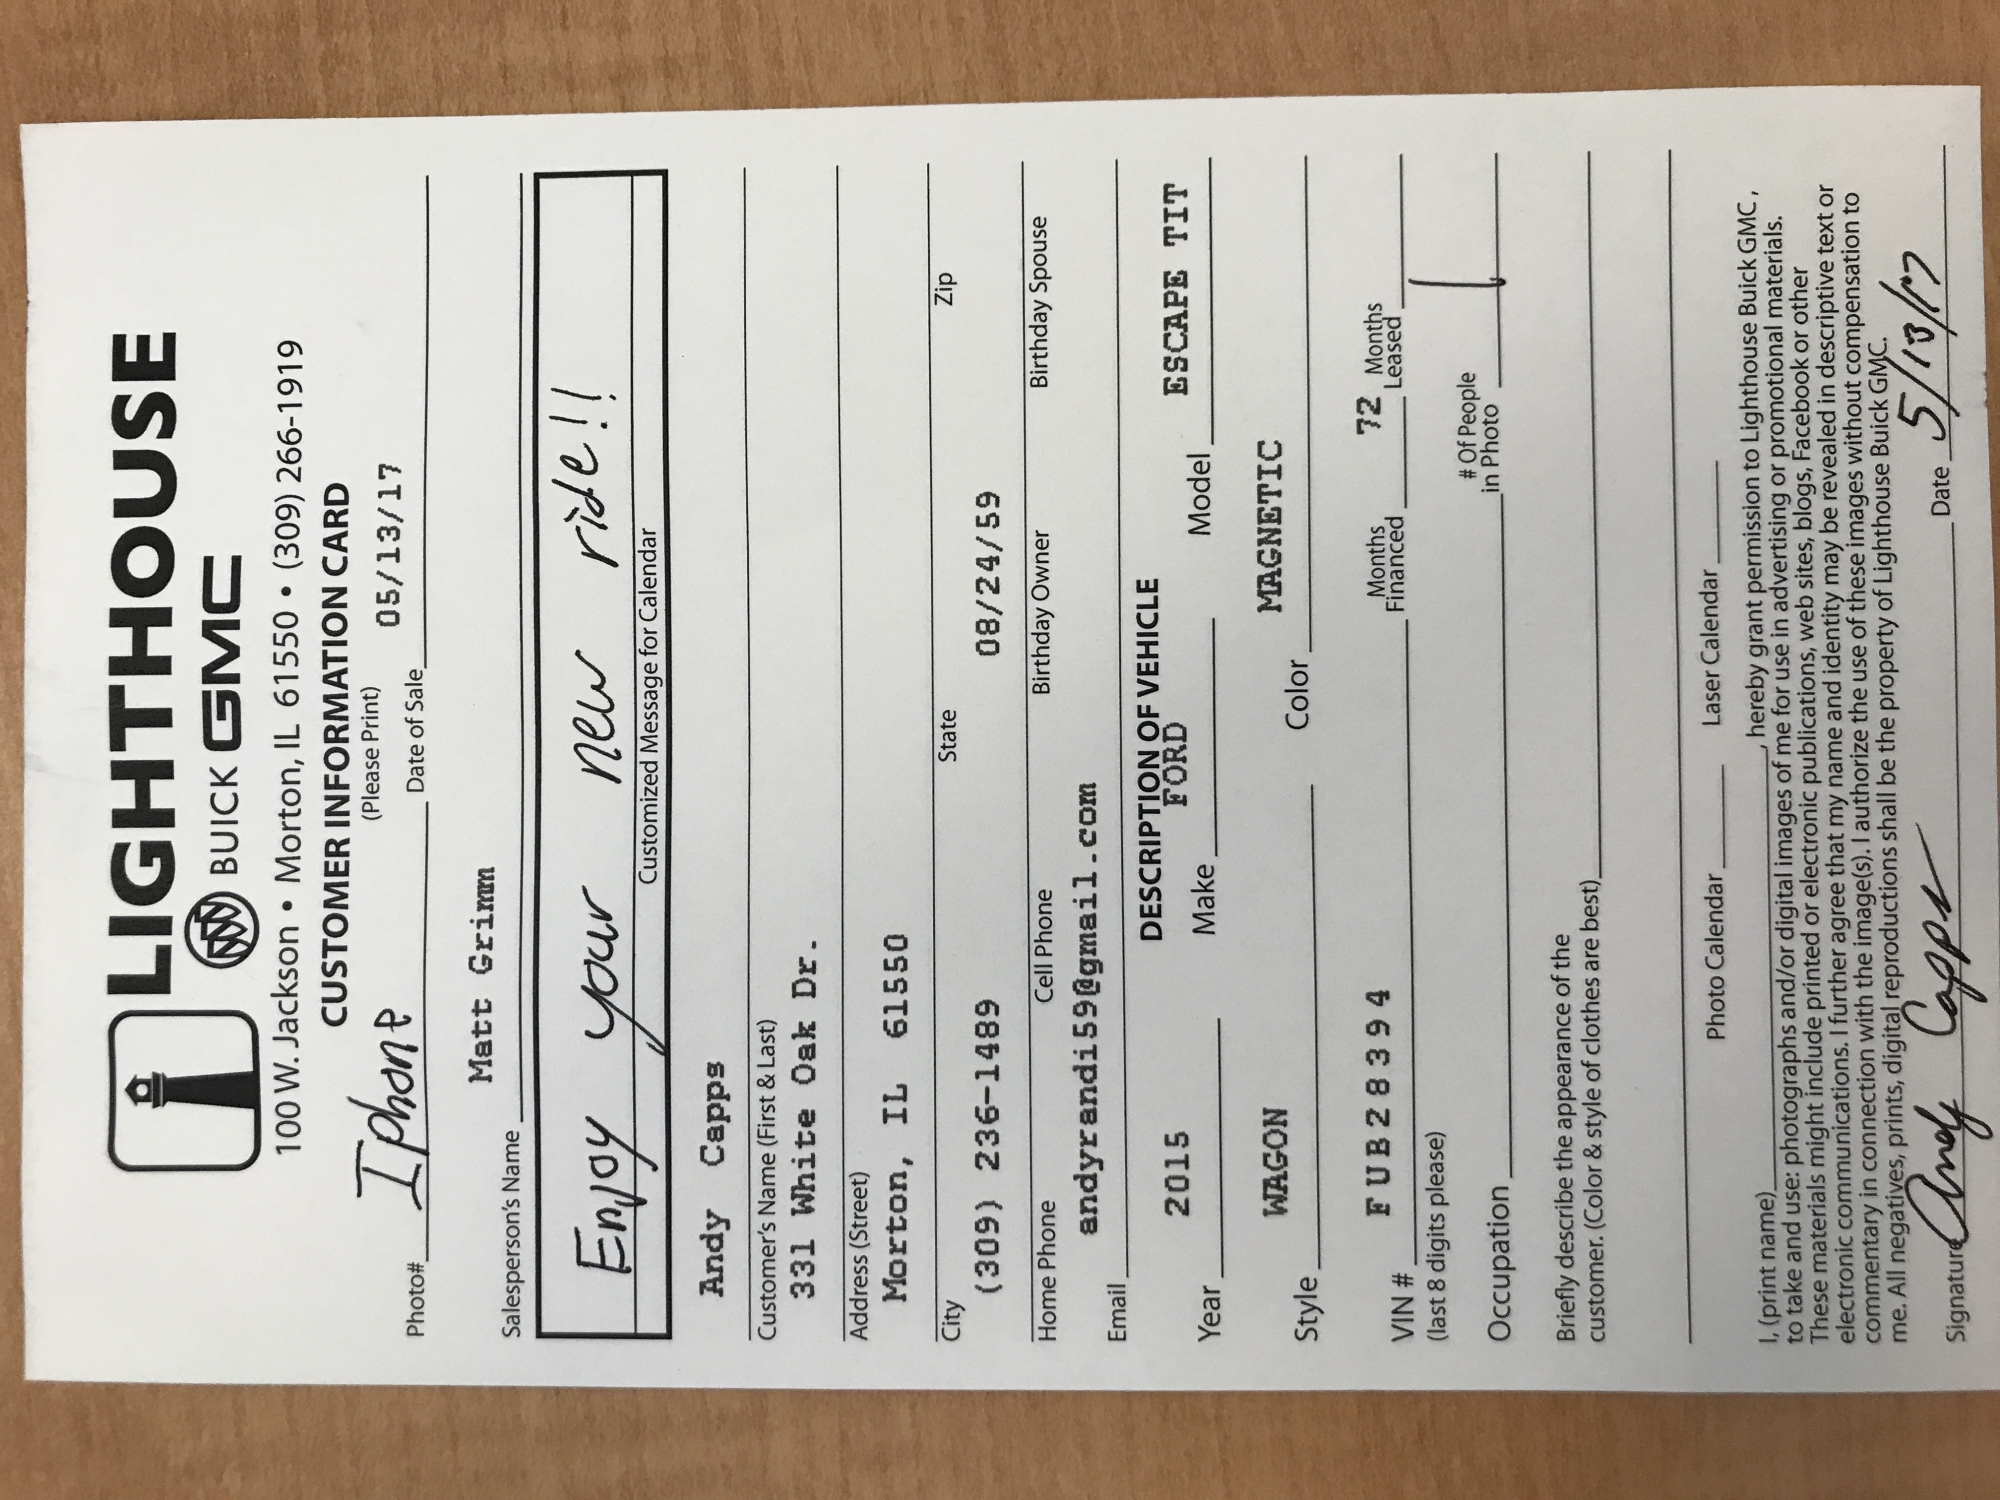 LIGHTHOUSE
BUICK GMC
100 W. Jackson • Morton, IL 61550 • (309) 266-1919
CUSTOMER INFORMATION CARD
(Please Print)
Photo# Iphone Date of Sale 05/13/17
Matt Grimm
Salesperson's Name
Enjoy your new ride!!
Customized Message for Calendar
Andy Capps
Customer's Name (First & Last)
331 White Oak Dr.
Address (Street)
Morton, IL 61550
City State Zip
(309) 236-1489 08/24/59
Home Phone Cell Phone Birthday Owner Birthday Spouse
Email andyrandi59@gmail.com
DESCRIPTION OF VEHICLE
Year 2015 Make FORD Model ESCAPE TIT
Style WAGON Color MAGNETIC
VIN # FUB28394 Months Financed 72 Months Leased
(last 8 digits please)
Occupation # Of People in Photo 1
Briefly describe the appearance of the
customer. (Color & style of clothes are best)
Photo Calendar Laser Calendar
I, (print name) , hereby grant permission to Lighthouse Buick GMC,
to take and use: photographs and/or digital images of me for use in advertising or promotional materials.
These materials might include printed or electronic publications, web sites, blogs, Facebook or other
electronic communications. I further agree that my name and identity may be revealed in descriptive text or
commentary in connection with the image(s). I authorize the use of these images without compensation to
me. All negatives, prints, digital reproductions shall be the property of Lighthouse Buick GMC.
Signature Andy Capps Date 5/13/17